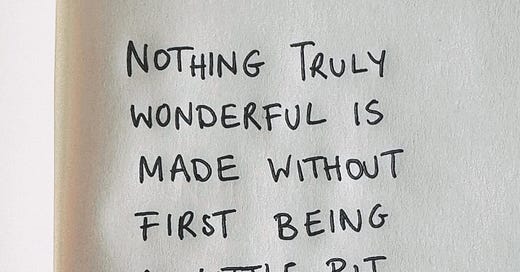 NOTHING TRULY
WONDERFUL IS
MADE WITHOUT
FIRST BEING